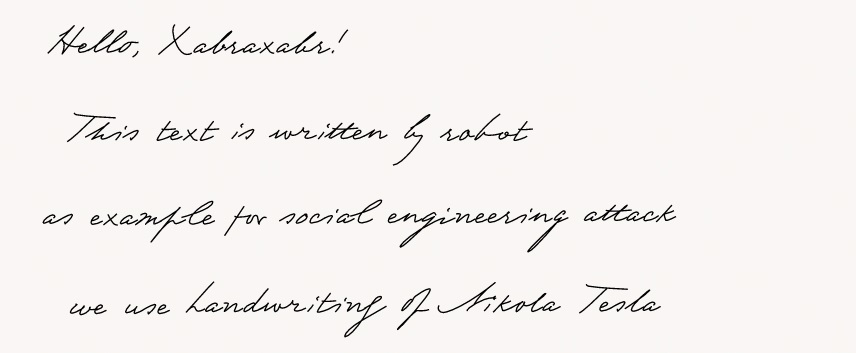 Hello, Xabraxabr!
This text is written by robot
as example for social engineering attack
we use handwriting of Nikola Tesla